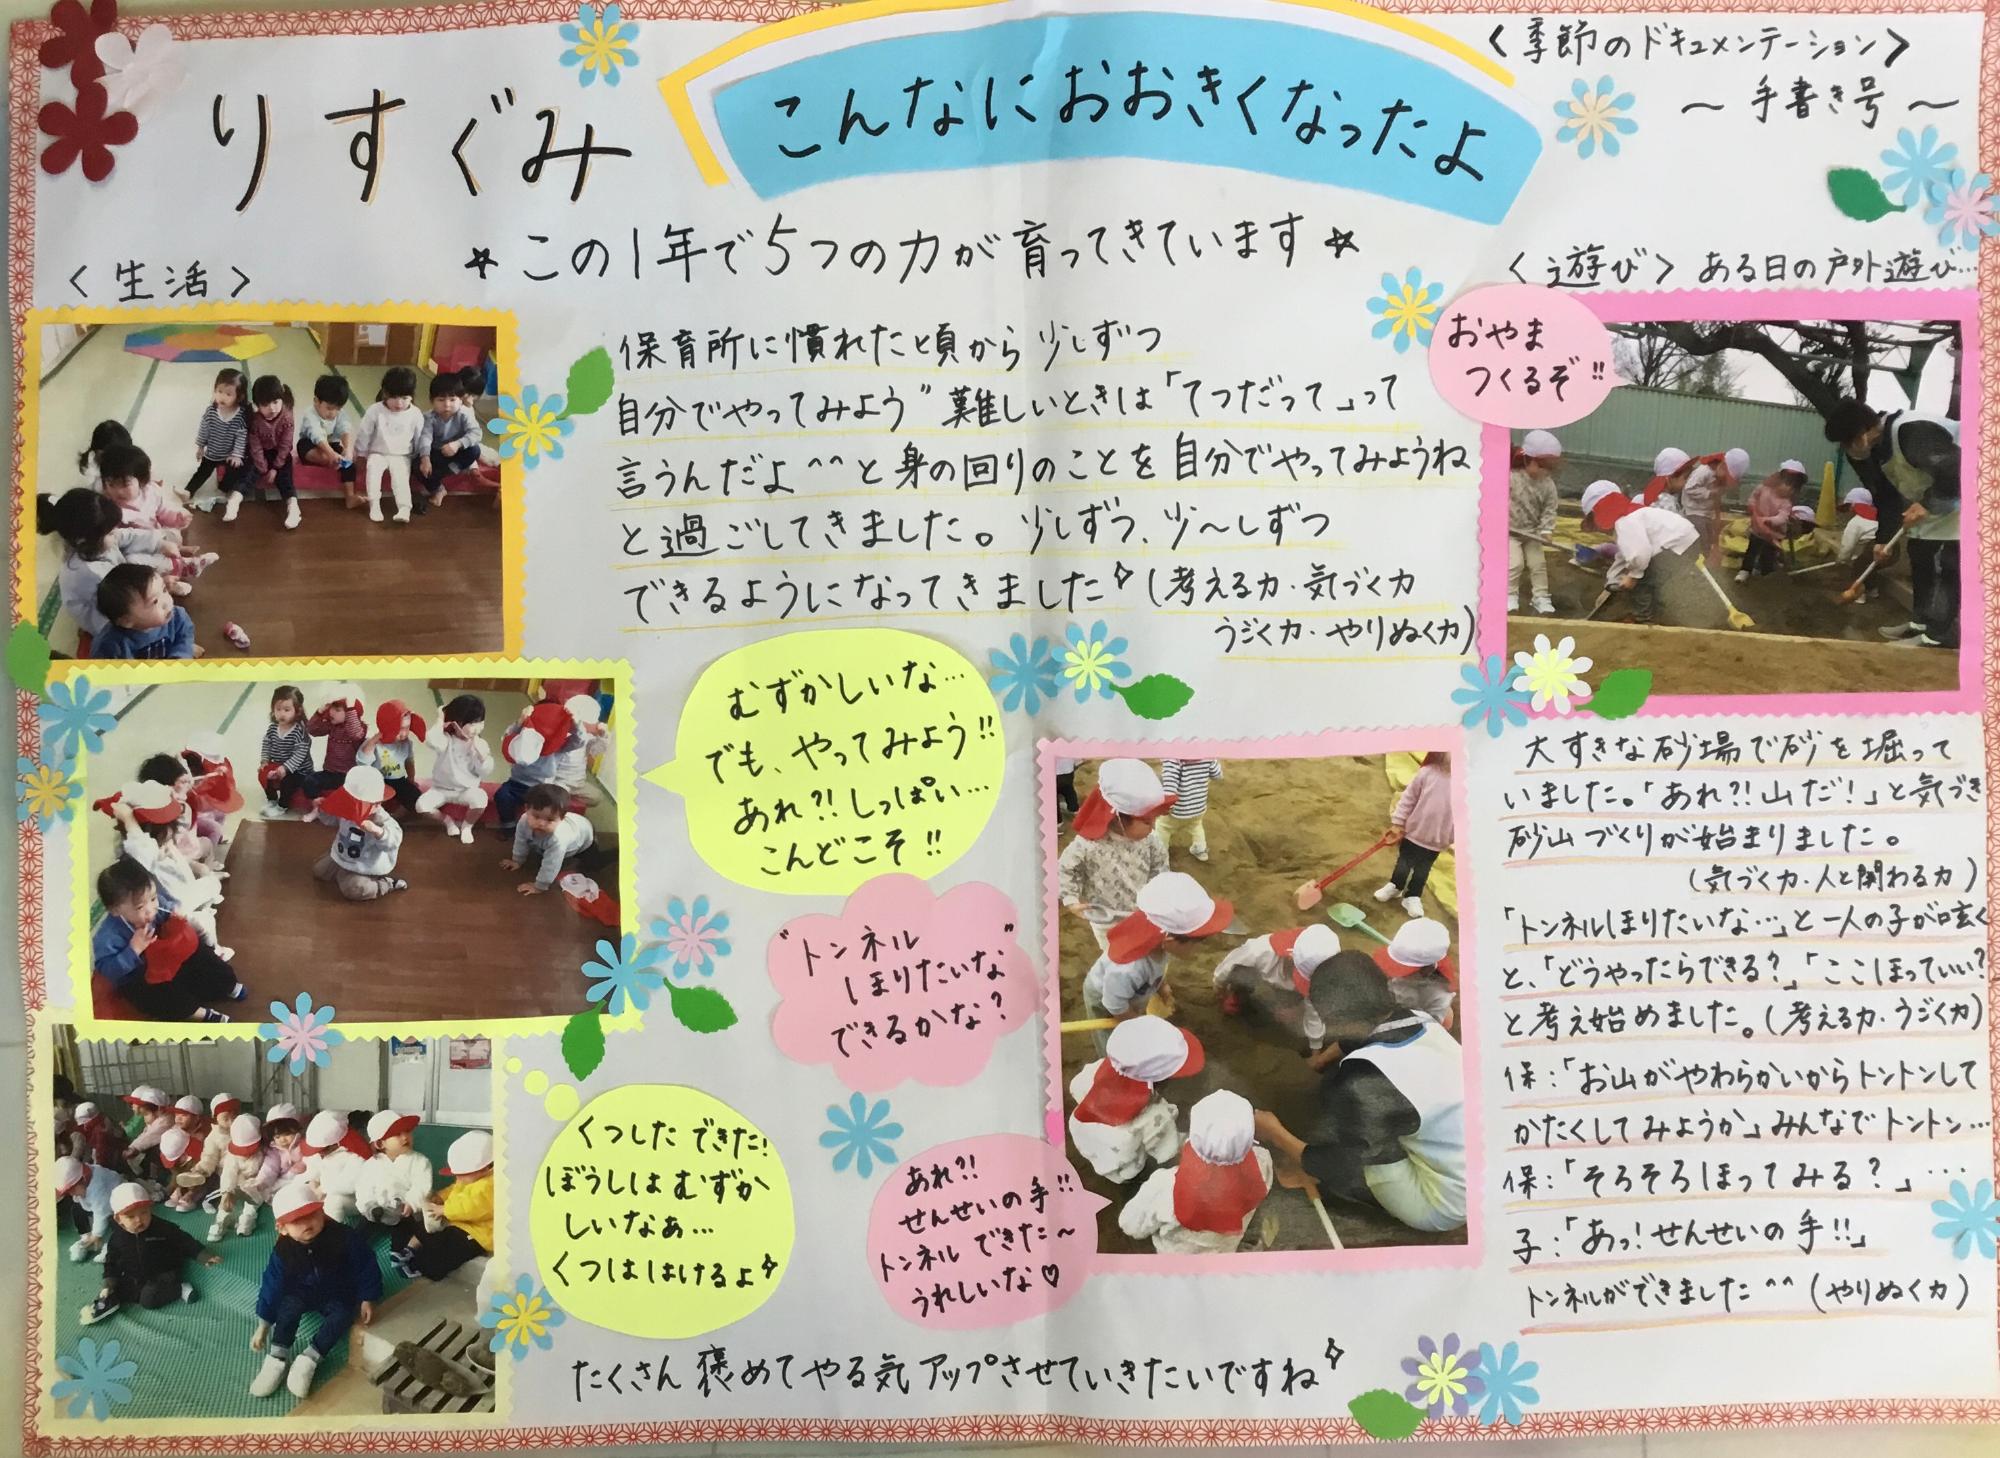 りすぐみ
こんなにおおきくなったよ
〈季節のドキュメンテーション〉
～手書き号～
☆この1年で5つの力が育ってきています☆
〈生活〉
保育所に慣れた頃から少しずつ
自分でやってみよう"難しいときは「てつだって」って
言うんだよ^^と身の回りのことを自分でやってみようね
と過ごしてきました。少しずつ、少～しずつ
できるようになってきました(考える力・気づく力
うごく力・やりぬく力)
むずかしいな…
でも、やってみよう!!
あれ?!しっぱい…
こんどこそ!!
くつしたできた!
ぼうしはむずか
しいなぁ…
くつははけるよ
〈遊び〉ある日の戸外遊び…
おやま
つくるぞ!!
"トンネル
ほりたいな"
できるかな?
あれ?!
せんせいの手!!
トンネルできた～
うれしいな♡
大すきな砂場で砂を堀って
いました。「あれ?!山だ!」と気づき
砂山づくりが始まりました。
(気づく力・人と関わる力)
「トンネルほりたいな…」と一人の子が呟く
と、「どうやったらできる?」「ここほっていい?
と考え始めました。(考える力・うごく力)
保:「お山がやわらかいからトントンして
かたくしてみようか」みんなでトントン…
保:「そろそろほってみる?」…
子:「あっ!せんせいの手!!」
トンネルができました^^(やりぬく力)
たくさん褒めてやる気アップさせていきたいですね